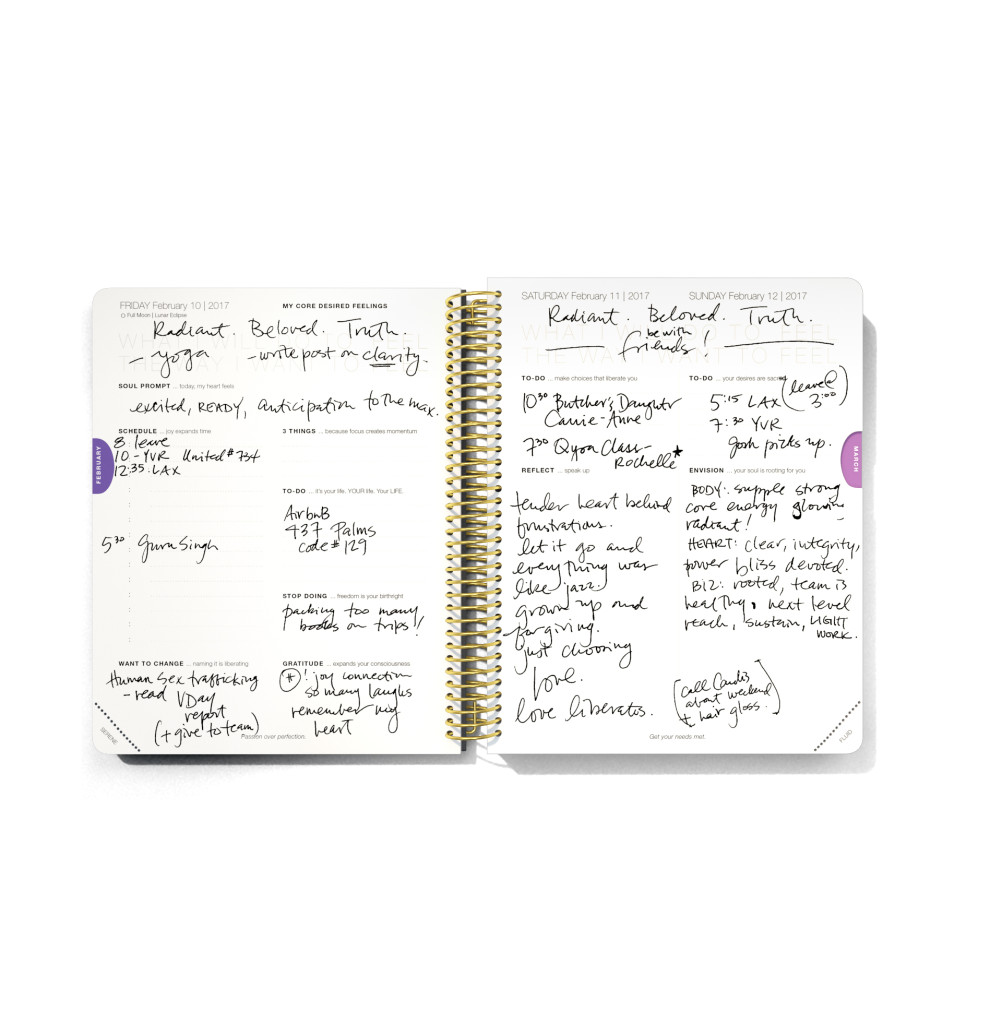 FRIDAY February 10 | 2017
Full Moon | Lunar Eclipse
MY CORE DESIRED FEELINGS
Radiant. Beloved. Truth.
WHAT I WILL DO TO FEEL
THE WAY I WANT TO FEEL
- yoga - write post on clarity.
SOUL PROMPT ... today, my heart feels
excited, READY, anticipation to the max.
SCHEDULE ... joy expands time
8 leave
10 - YVR United # 734
12:35 LAX
5 30 Guru Singh
3 THINGS ... because focus creates momentum
TO-DO ... it's your life. YOUR life. Your LIFE.
AirbnB
737 Palms
code # 129
STOP DOING ... freedom is your birthright
packing too many
books on trips!
WANT TO CHANGE ... naming it is liberating
Human Sex trafficking
- read VDay
report
(+ give to team)
GRATITUDE ... expands your consciousness
# ! joy connection
so many laughs
remember my
heart
SERENE
Passion over perfection.
FEBRUARY
SATURDAY February 11 | 2017
SUNDAY February 12 | 2017
Radiant. Beloved. Truth.
WHAT I WILL DO TO FEEL
THE WAY I WANT TO FEEL
be with
friends!
TO-DO ... make choices that liberate you
10 30 Butcher's Daughter
Carrie-Anne
7 30 Class -
Rochelle
REFLECT ... speak up
tender heart behind
frustrations.
let it go and
everything was
like jazz.
grown up and
forgiving.
just choosing
love.
love liberates.
TO-DO ... your desires are sacred
(leave @
3:00)
5:15 LAX
7:30 YVR
Gosh picks up.
ENVISION ... your soul is rooting for you
BODY: supple strong
core energy glowing
radiant!
HEART: clear, integrity,
power bliss devoted.
BIZ: rooted, team is
healthy, next level
reach, sustain, LIGHT
WORK.
(call Candis
about weekend
+ hair gloss.)
Get your needs met.
FLUID
MARCH